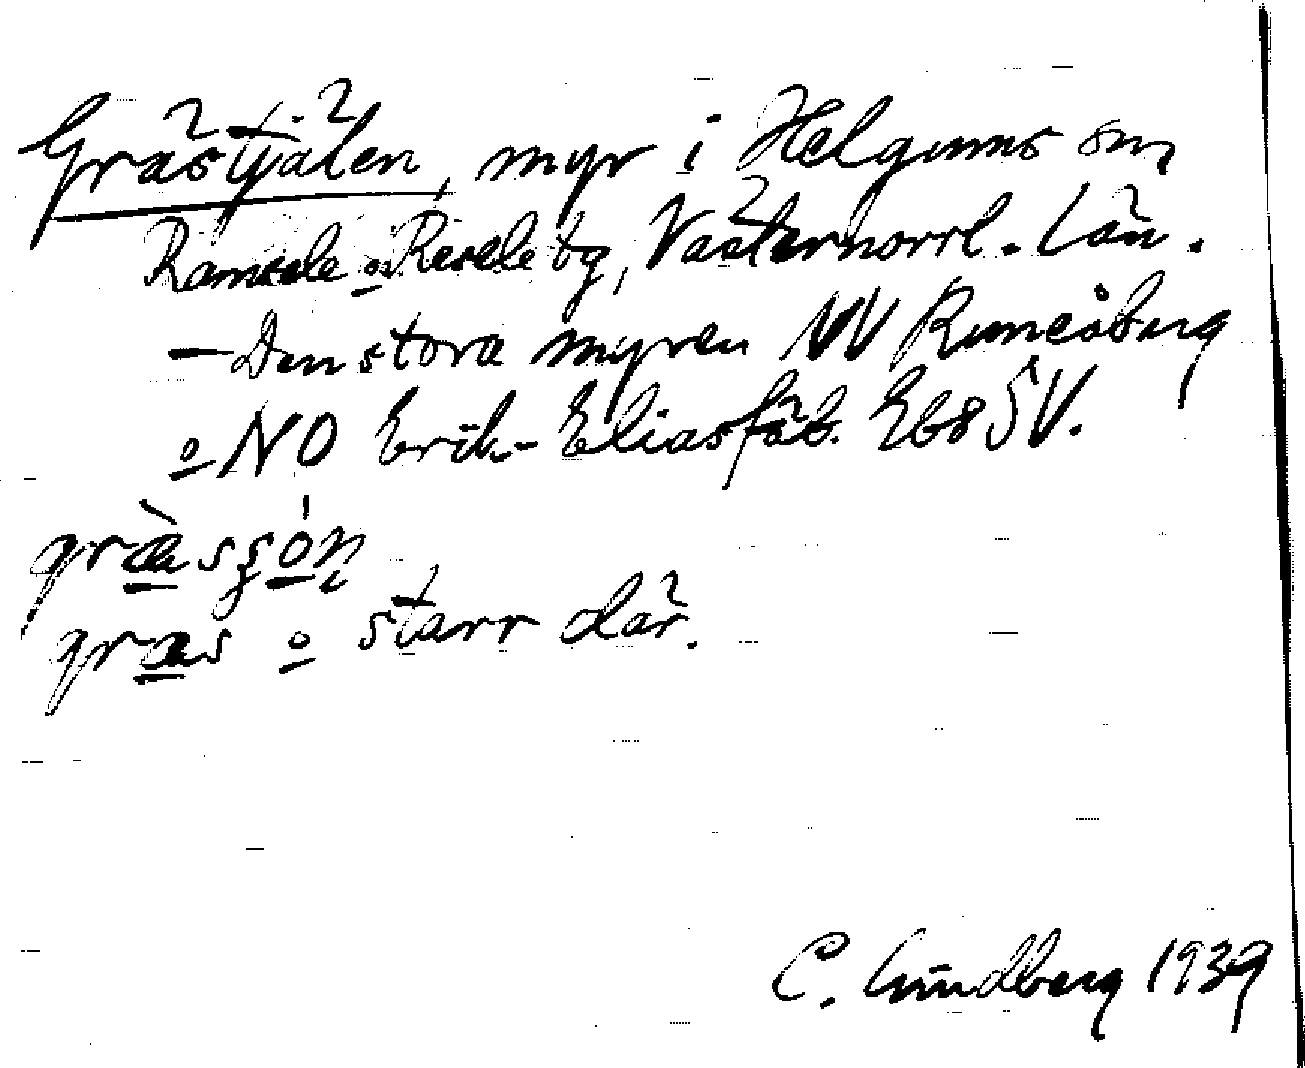 Grästjälen, myr i Helgums sn,
Ramsele o Resele tg, Västernorrl. län.
— Den stora myren NV Runåsberg
o NO Erik-Eliasfäb. Eb8 SV.
græ̀sʂón
græs o starr där.
C. Lundberg 1939